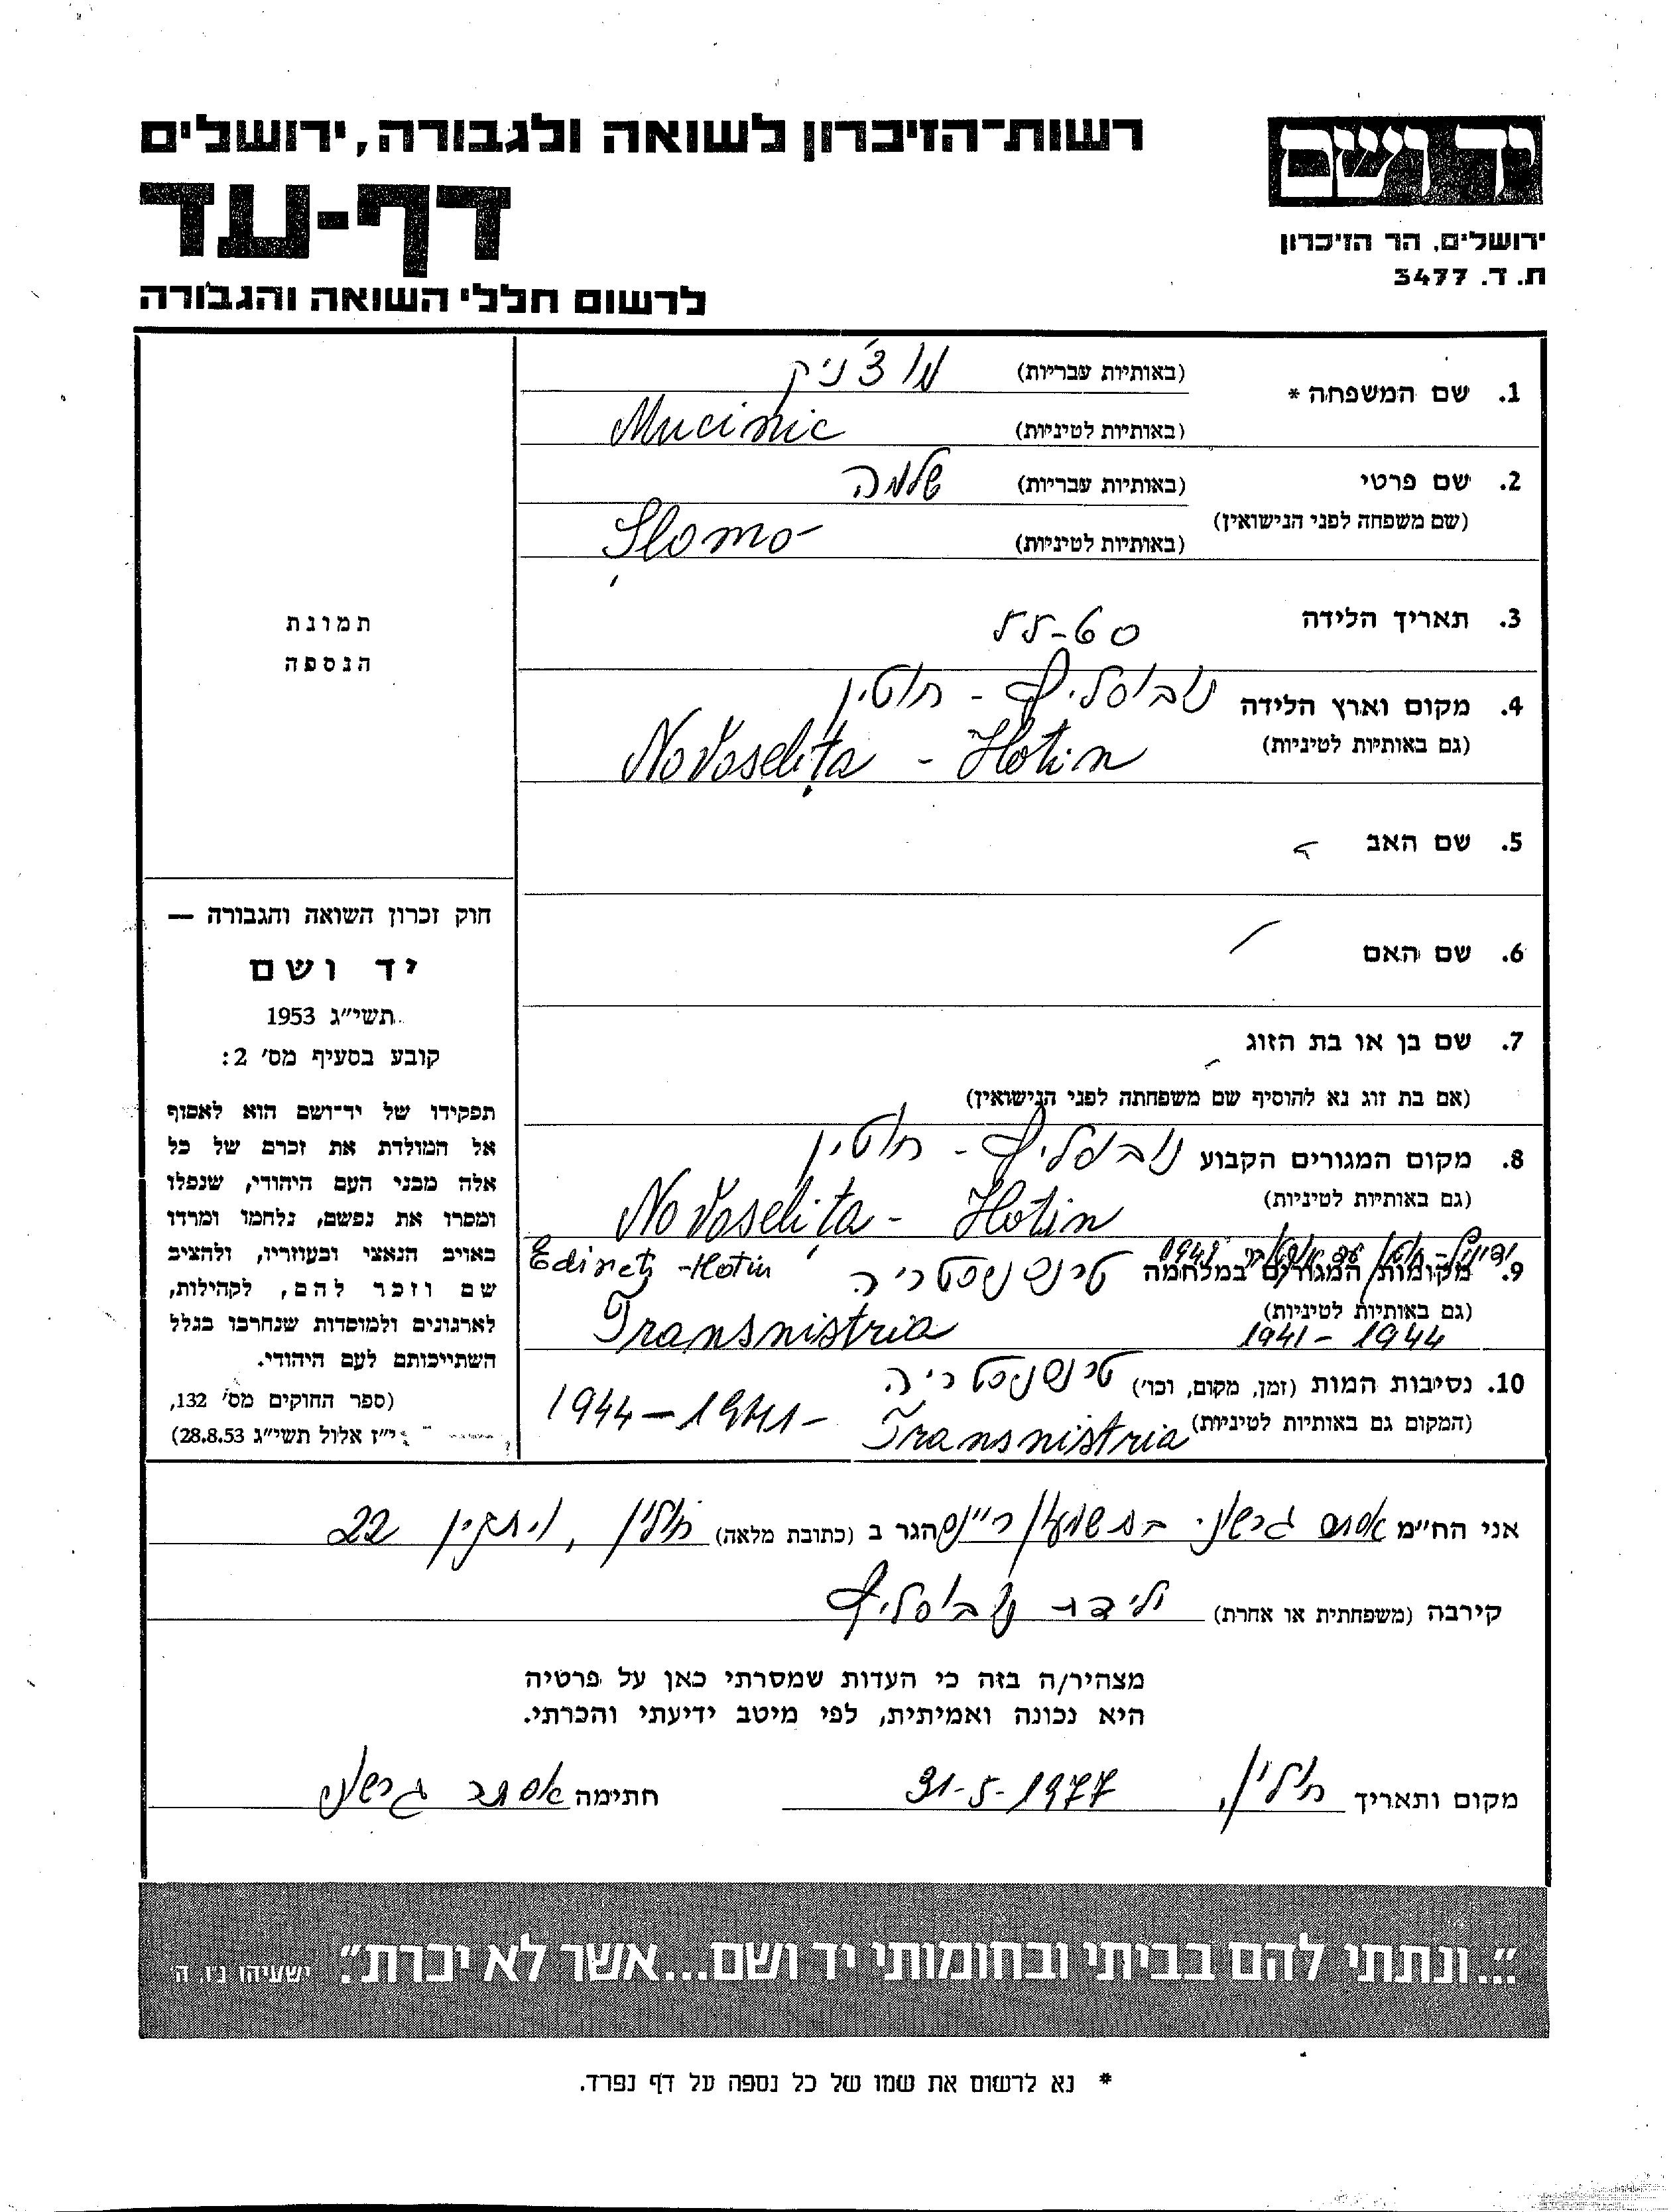 רשות־הזיכרון לשואה ולגבורה, ירושלים
יד ושם
דף-עד
ירושלים, הר הזיכרון
ת. ד. 3477
לרשום חללי השואה והגבורה
1. שם המשפחה * (באותיות עבריות) מוצ'ניק
(באותיות לטיניות) Mucinic
2. שם פרטי (באותיות עבריות) שלמה
(שם משפחה לפני הנישואין)
(באותיות לטיניות) Șlomo
3. תאריך הלידה 55-60
4. מקום וארץ הלידה נובוסליץ - חוטין
(גם באותיות לטיניות) Novoselița - Hotin
5. שם האב
6. שם האם
7. שם בן או בת הזוג
(אם בת זוג נא להוסיף שם משפחתה לפני הנישואין)
8. מקום המגורים הקבוע נובוסליץ - חוטין
(גם באותיות לטיניות) Novoselița - Hotin
9. מקומות המגורים במלחמה טרנסניסטריה Edineț - Hotin
(גם באותיות לטיניות) Transnistria
1941 - 1944
10. נסיבות המות (זמן, מקום, וכו') טרנסניסטריה
(המקום גם באותיות לטיניות) Transnistria - 1941 - 1944
תמונת
הנספה
חוק זכרון השואה והגבורה —
יד ושם
תשי״ג 1953
קובע בסעיף מס׳ 2:
תפקידו של יד־ושם הוא לאסוף
אל המולדת את זכרם של כל
אלה מבני העם היהודי, שנפלו
ומסרו את נפשם, נלחמו ומרדו
באויב הנאצי ובעוזריו, ולהציב
שם וזכר להם, לקהילות,
לארגונים ולמוסדות שנחרבו בגלל
השתייכותם לעם היהודי.
(ספר החוקים מס׳ 132,
י״ז אלול תשי״ג 28.8.53)
אני הח״מ אסתר גרשוני בת שמעון הגר ב (כתובת מלאה) חולון, 22
קירבה (משפחתית או אחרת) ילידת נובוסליץ
מצהיר/ה בזה כי העדות שמסרתי כאן על פרטיה
היא נכונה ואמיתית, לפי מיטב ידיעתי והכרתי.
מקום ותאריך חולון, 31-5-1977 חתימה אסתר גרשוני
״...ונתתי להם בביתי ובחומותי יד ושם...אשר לא יכרת״. ישעיהו נ״ו, ה׳
* נא לרשום את שמו של כל נספה על דף נפרד.